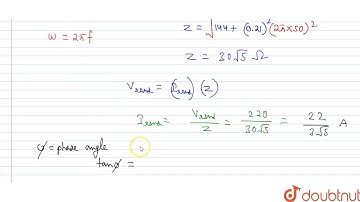 ω = 2πf
Z = √144 + (0.21)²(2π×50)²
Z = 30√5 Ω
V_rms = (I_rms) (Z)
I_rms = V_rms / Z = 220 / 30√5 = 22 / 3√5 A
φ = phase angle
tanφ =
doubtnut